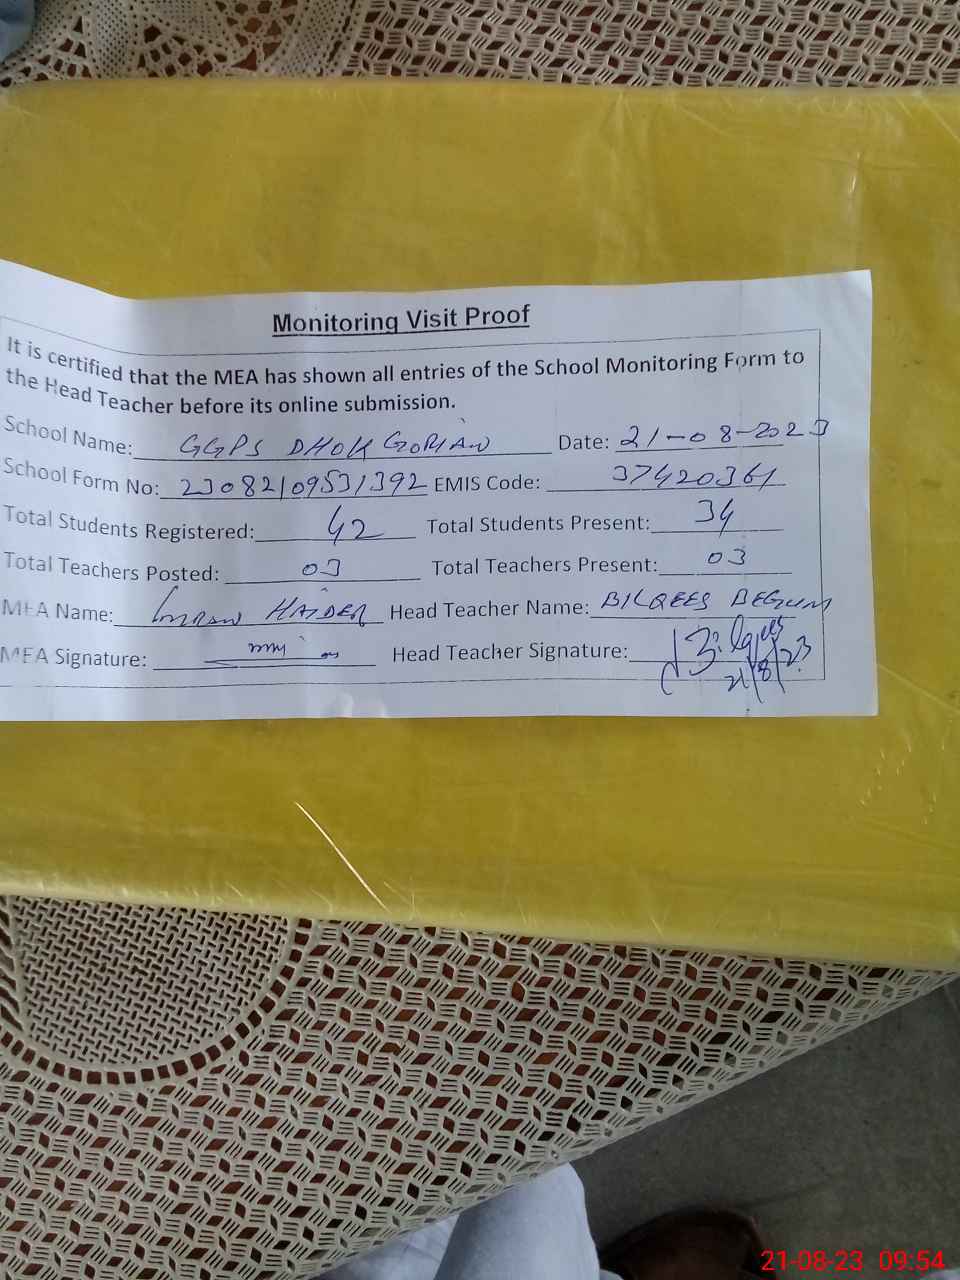 Monitoring Visit Proof
It is certified that the MEA has shown all entries of the School Monitoring Form to
the Head Teacher before its online submission.
School Name: GGPS DHOK GORIAN Date: 21-08-2023
School Form No: 23082109531392 EMIS Code: 37420361
Total Students Registered: 42 Total Students Present: 34
Total Teachers Posted: 03 Total Teachers Present: 03
MEA Name: IMRAN HAIDER Head Teacher Name: BILQEES BEGUM
MEA Signature: Head Teacher Signature: Bilqees
21/8/23
21-08-23 09:54